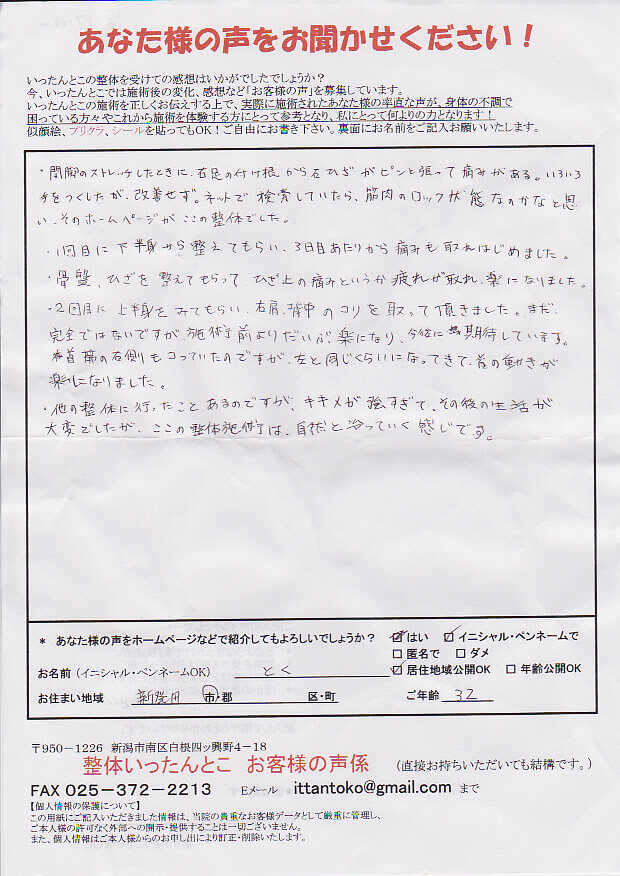 あなた様の声をお聞かせください！
いったんとこの整体を受けての感想はいかがでしたでしょうか？
今、いったんとこでは施術後の変化、感想など「お客様の声」を募集しています。
いったんとこの施術を正しくお伝えする上で、実際に施術されたあなた様の率直な声が、身体の不調で
困っている方々やこれから施術を体験する方にとって参考となり、私にとって何よりの力となります！
似顔絵、プリクラ、シールを貼ってもOK！ご自由にお書き下さい。裏面にお名前をご記入お願いいたします。
・開脚のストレッチしたときに、右足の付け根から左ひざがピンと張って痛みがある。いろいろ
手をつくしたが、改善せず。ネットで検索していたら、筋肉のロック状態なのかなと思
い、そのホームページがここの整体でした。
・1回目に下半身から整えてもらい、3日目あたりから痛みも取れはじめました。
・骨盤、ひざを整えてもらって、ひざ上の痛みというか疲れが取れ、楽になりました。
・2回目に上半身をみてもらい、右肩、背中のコリを取って頂きました。まだ
完全ではないですが、施術前よりだいぶ楽になり、今後に期待しています。
首筋の右側もコっていたのですが、左と同じくらいになってきて、首の動きが
楽になりました。
・他の整体に行ったことあるのですが、キキメが強すぎて、その後の生活が
大変でしたが、ここの整体施術は、自然と治っていく感じです。
* あなた様の声をホームページなどで紹介してもよろしいでしょうか？ ☑はい ☑イニシャル・ペンネームで
□匿名で □ダメ
お名前（イニシャル・ペンネームOK） とく ☑居住地域公開OK □年齢公開OK
お住まい地域 新発田 市・郡 区・町 ご年齢 32
〒950－1226 新潟市南区白根四ッ興野4－18
整体いったんとこ お客様の声係 （直接お持ちいただいても結構です。）
FAX 025－372－2213 Eメール ittantoko@gmail.com まで
【個人情報の保護について】
この用紙にご記入いただきました情報は、当院の貴重なお客様データとして厳重に管理し、
ご本人様の許可なく外部への開示・提供することは一切ございません。
また、個人情報はご本人様からのお申し出により訂正・削除いたします。